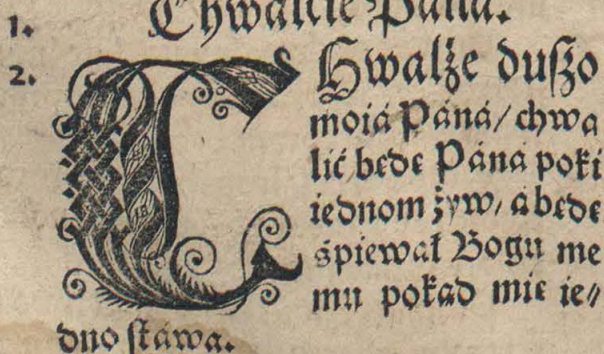 1. Chwalcie Pána.
2. CHwalże duszo
moiá Páná/ chwa
lić będę Páná poki
iednom żyw/ á będę
śpiewał Bogu me
mu pokąd mię ie⸗
dno stáwa.